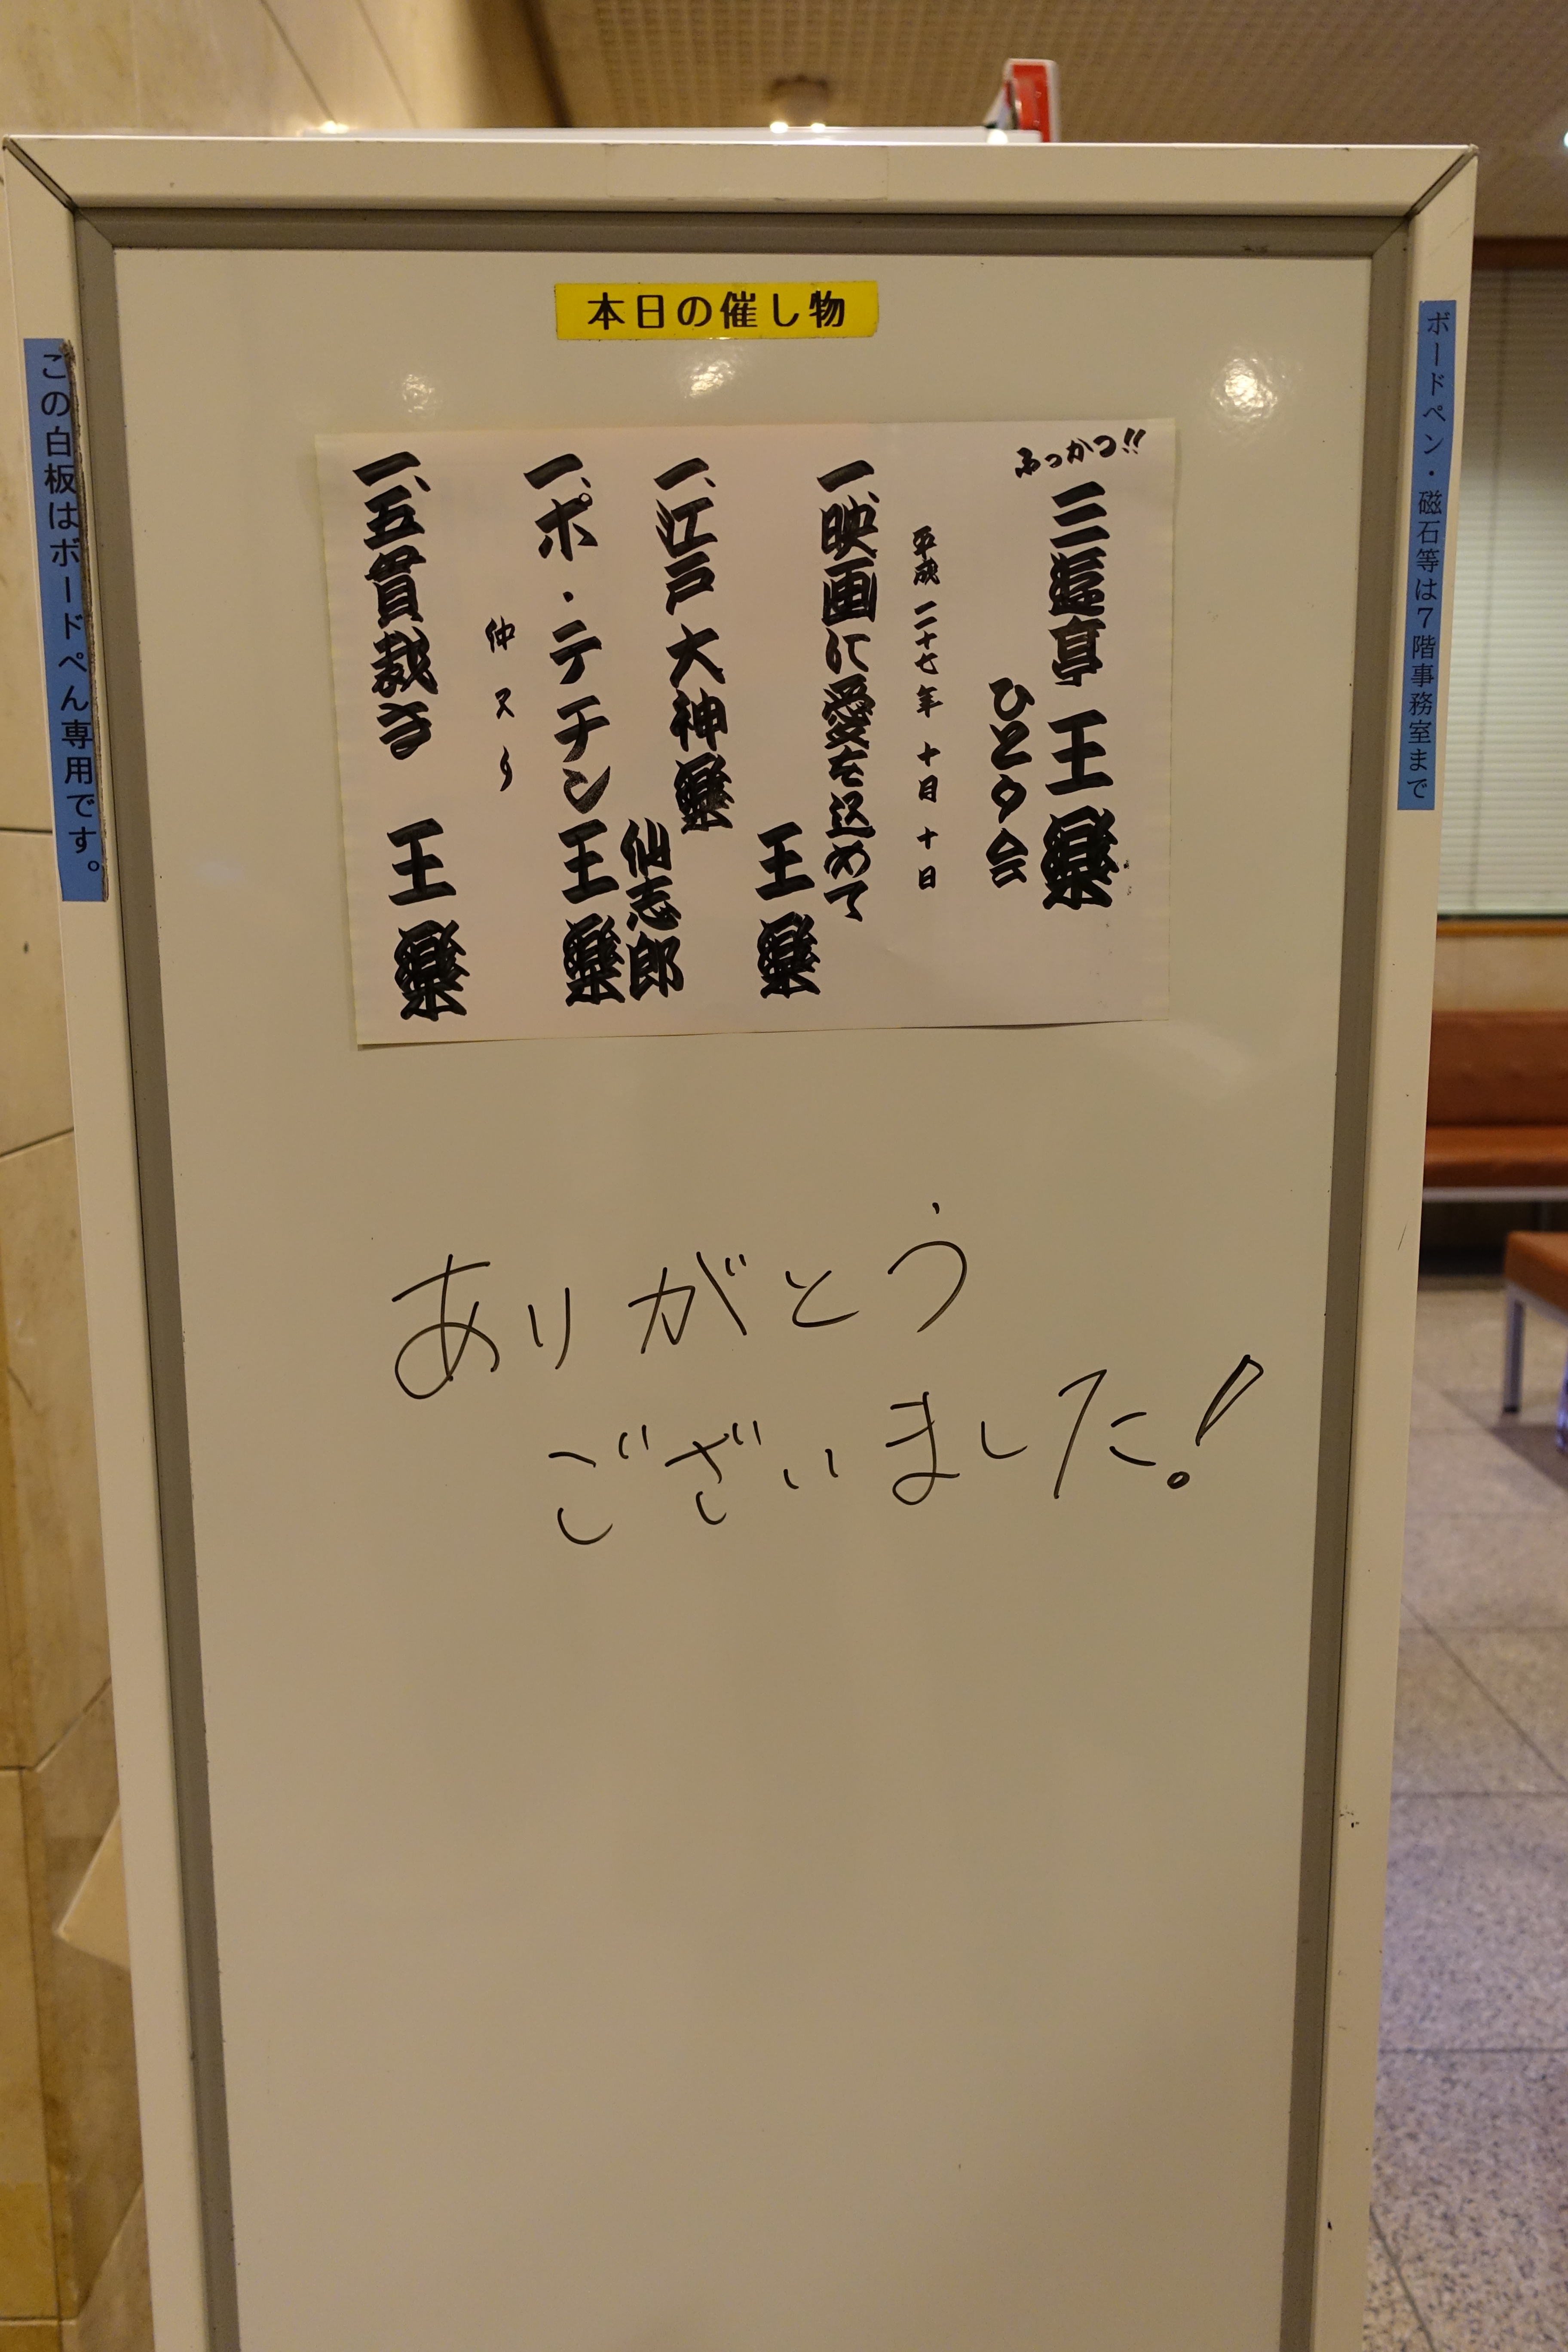 本日の催し物
ふっかつ!!
三遊亭 王樂
ひとり会
平成二十七年 十月 十日
一、映画に愛を込めて
王樂
一、江戸大神樂
仙志郎
一、ポ・テチン
王樂
仲入り
一、五貫裁き
王樂
ありがとう
ございました!
この白板はボードぺん専用です。
ボードペン・磁石等は7階事務室まで